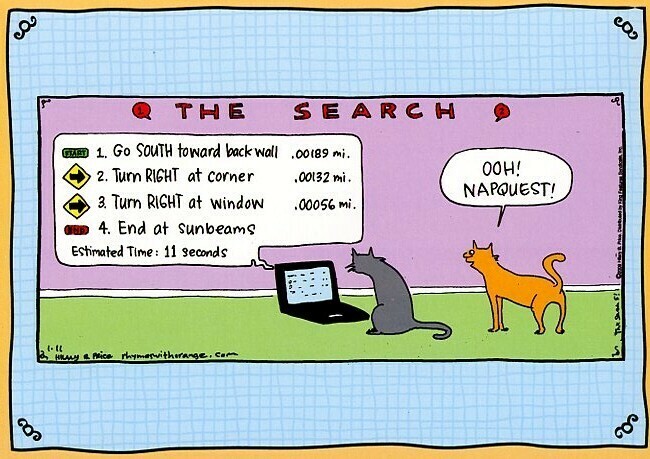 THE SEARCH
START 1. Go SOUTH toward back wall .00189 mi.
2. Turn RIGHT at corner .00132 mi.
3. Turn RIGHT at window .00056 mi.
END 4. End at sunbeams
Estimated Time: 11 seconds
OOH!
NAPQUEST!
1·11
Hilary B. Price rhymeswithorange.com